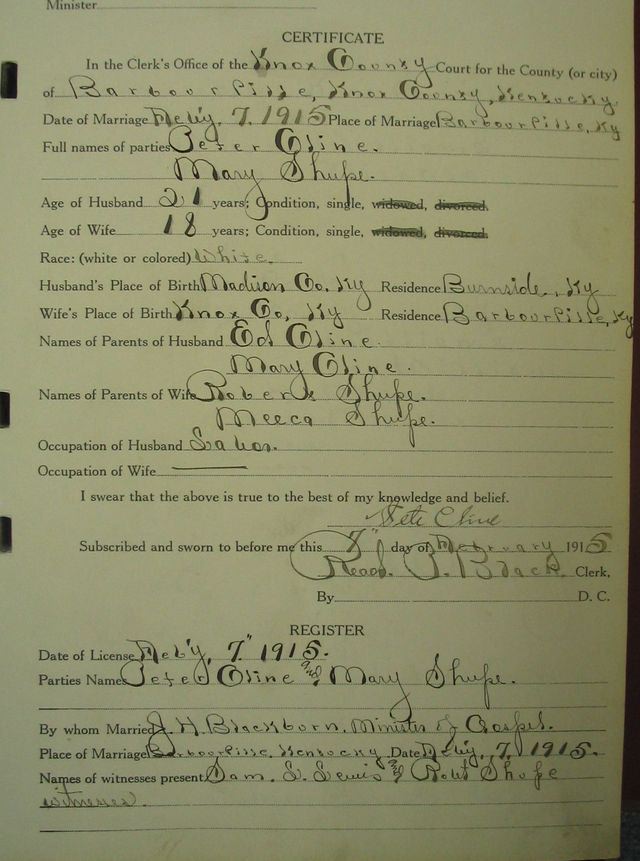 Minister
CERTIFICATE
In the Clerk's Office of the Knox County Court for the County (or city)
of Barbourville, Knox County, Kentucky.
Date of Marriage Feb'y, 7, 1915 Place of Marriage Barbourville, Ky
Full names of parties Peter Cline.
Mary Shupe.
Age of Husband 21 years; Condition, single, widowed, divorced.
Age of Wife 18 years; Condition, single, widowed, divorced.
Race: (white or colored) White.
Husband's Place of Birth Madison Co. Ky Residence Burnside, Ky
Wife's Place of Birth Knox Co, Ky Residence Barbourville, Ky
Names of Parents of Husband Ed Cline.
Mary Cline.
Names of Parents of Wife Robert Shupe.
Meeca Shupe.
Occupation of Husband Labor.
Occupation of Wife
I swear that the above is true to the best of my knowledge and belief.
Pete Cline
Subscribed and sworn to before me this 7" day of February 1915
Read P. Black Clerk,
By D. C.
REGISTER
Date of License Feb'y, 7" 1915.
Parties Names Peter Cline and Mary Shupe.
By whom Married J. H. Blackborn. Minister of Gospel.
Place of Marriage Barbourville, Kentucky Date Feb'y, 7, 1915.
Names of witnesses present Sam. L. Lewis and Robt Shupe
witnesses.